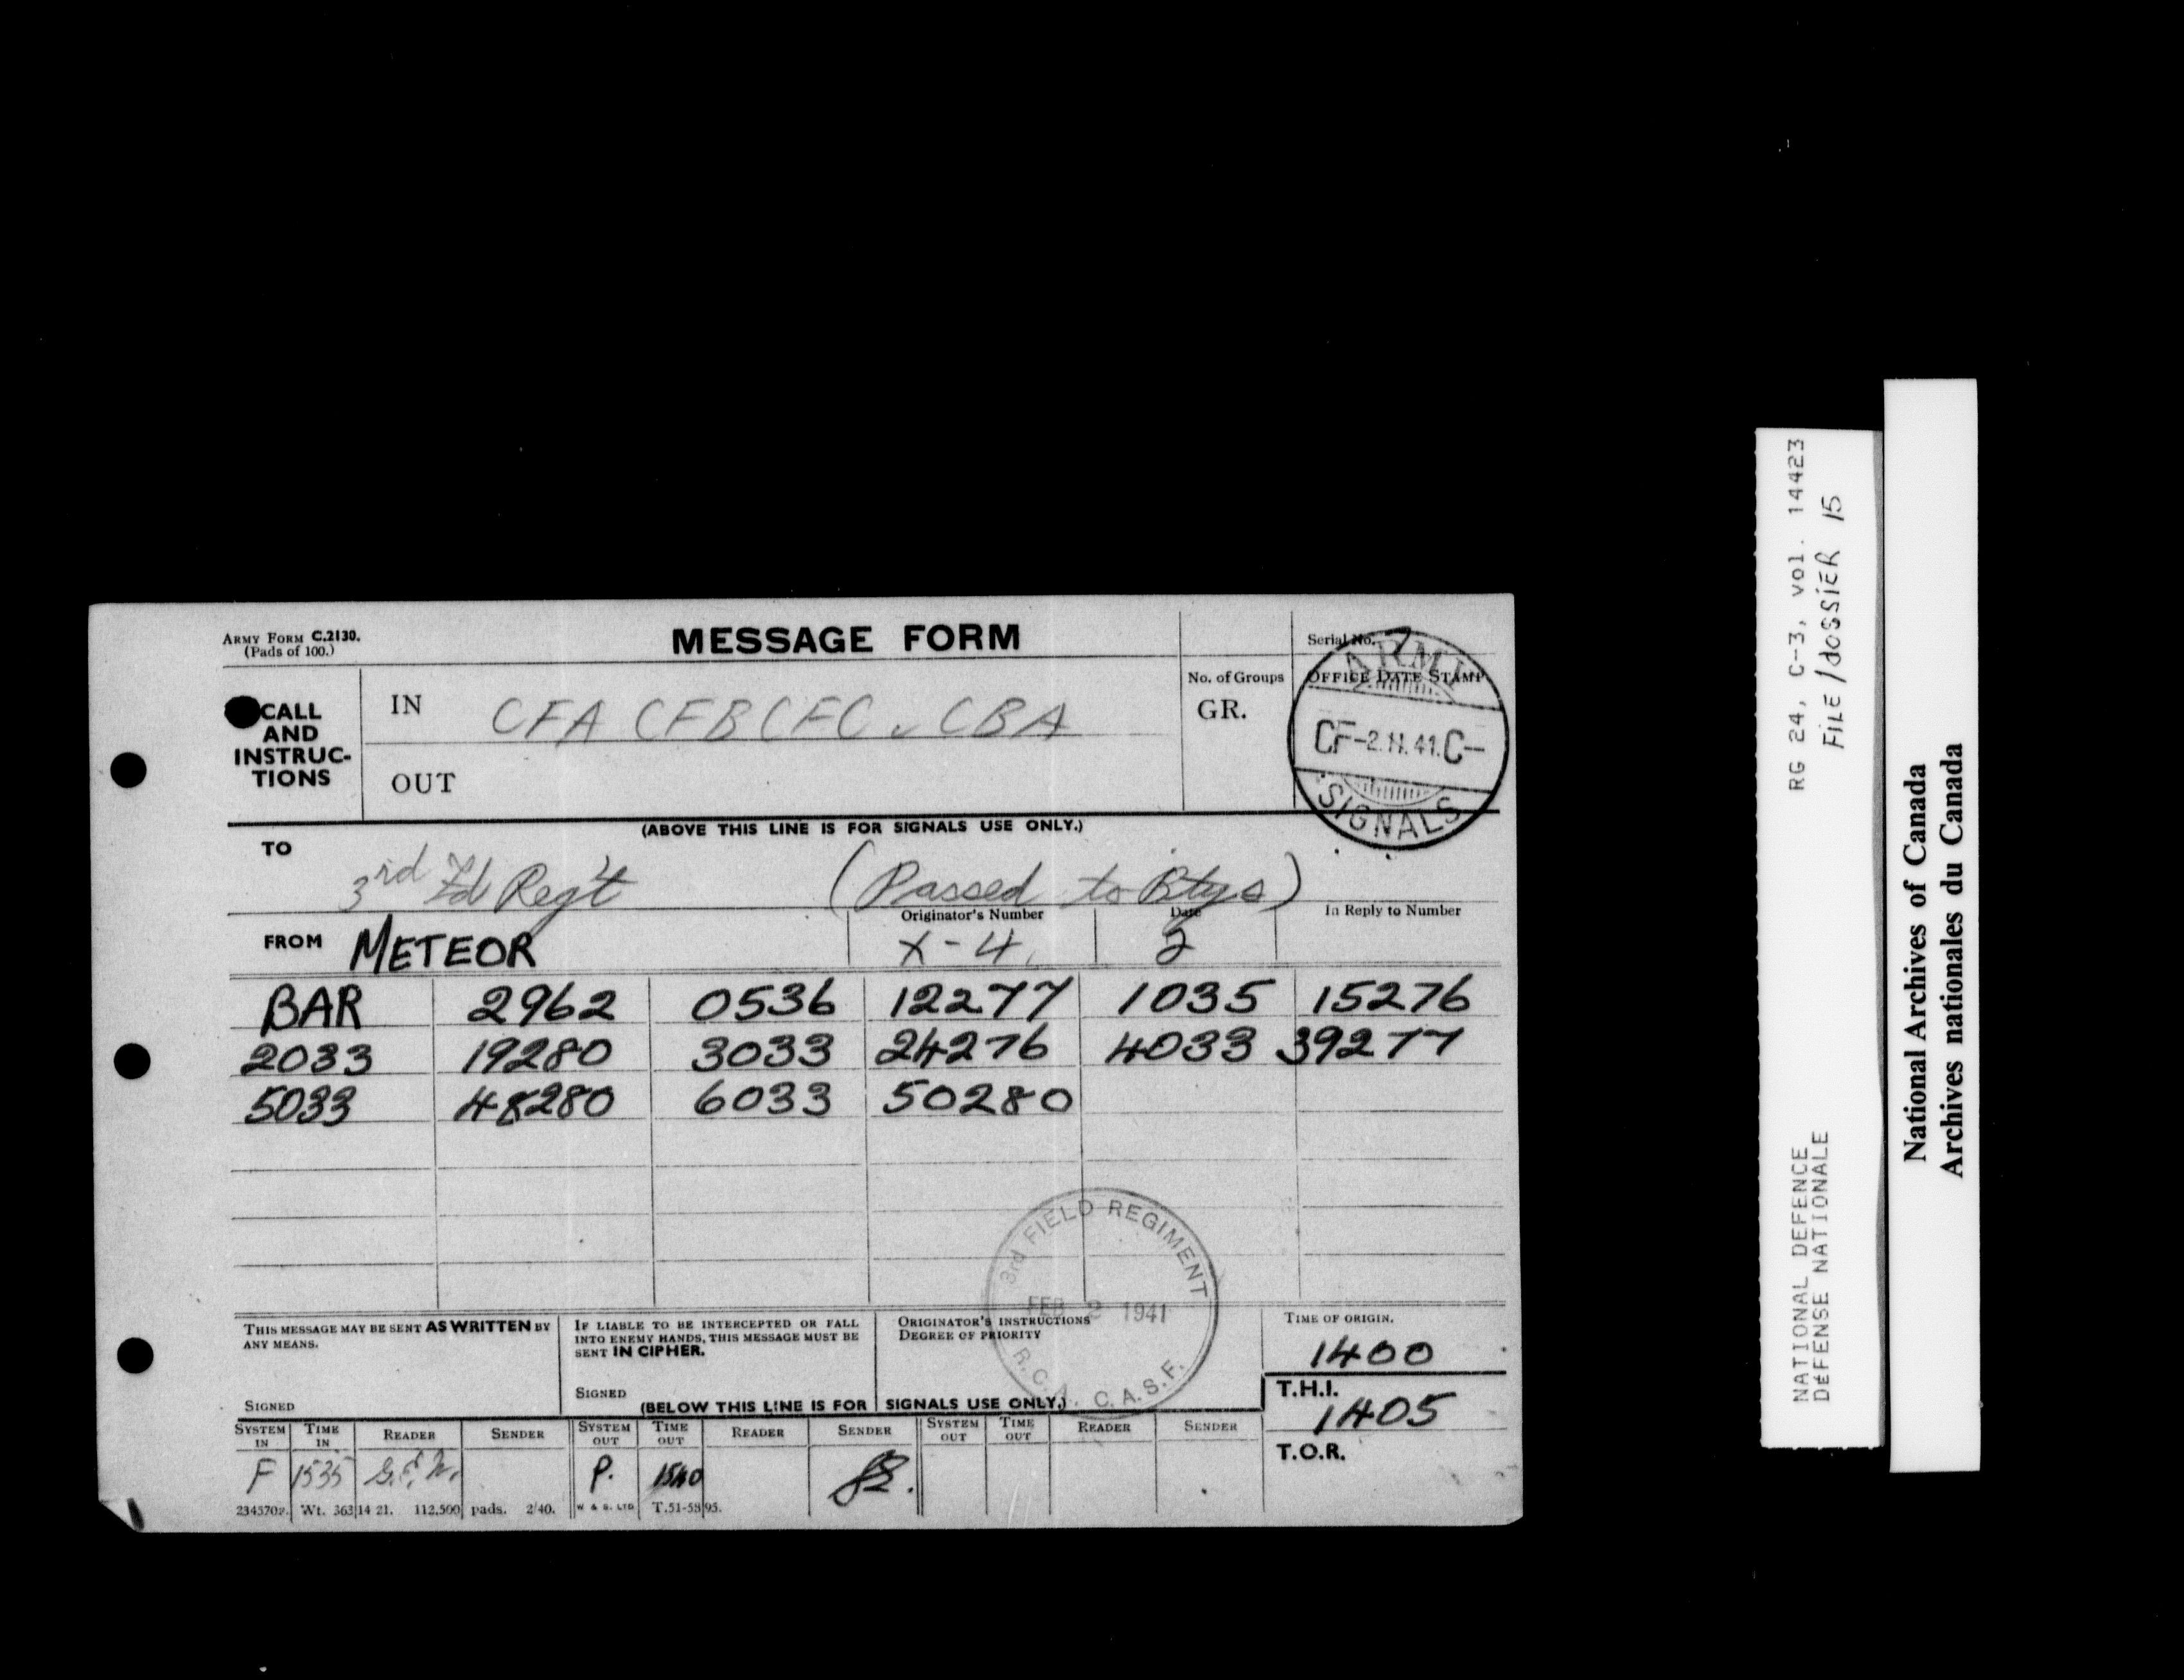 ARMY FORM C.2130.
(Pads of 100.)
MESSAGE FORM
Serial No. 7
CALL AND INSTRUC-TIONS
IN CFA CFB CFC v CBA
OUT
No. of Groups
GR.
OFFICE DATE STAMP
ARMY
CF-2.11.41.C-
SIGNALS
(ABOVE THIS LINE IS FOR SIGNALS USE ONLY.)
TO
3rd Fd Reg't (Passed to Btys)
FROM METEOR
Originator's Number X-4.
Date 2
In Reply to Number
BAR 2962 0536 12277 1035 15276
2033 19280 3033 24276 4033 39277
5033 48280 6033 50280
3rd FIELD REGIMENT
FEB 2 1941
R.C.A. C.A.S.F.
THIS MESSAGE MAY BE SENT AS WRITTEN BY ANY MEANS.
SIGNED
IF LIABLE TO BE INTERCEPTED OR FALL INTO ENEMY HANDS, THIS MESSAGE MUST BE SENT IN CIPHER.
SIGNED
ORIGINATOR'S INSTRUCTIONS
DEGREE OF PRIORITY
TIME OF ORIGIN.
1400
T.H.I.
1405
T.O.R.
(BELOW THIS LINE IS FOR SIGNALS USE ONLY.)
SYSTEM IN TIME IN READER SENDER SYSTEM OUT TIME OUT READER SENDER SYSTEM OUT TIME OUT READER SENDER
F 1535 P. 1540
Wt. 36314 21. 112,500 pads. 2/40. W & S. LTD T.51-5895.
RG 24, C-3, vol. 14423
FILE/dossier 15
NATIONAL DEFENCE
DÉFENSE NATIONALE
National Archives of Canada
Archives nationales du Canada